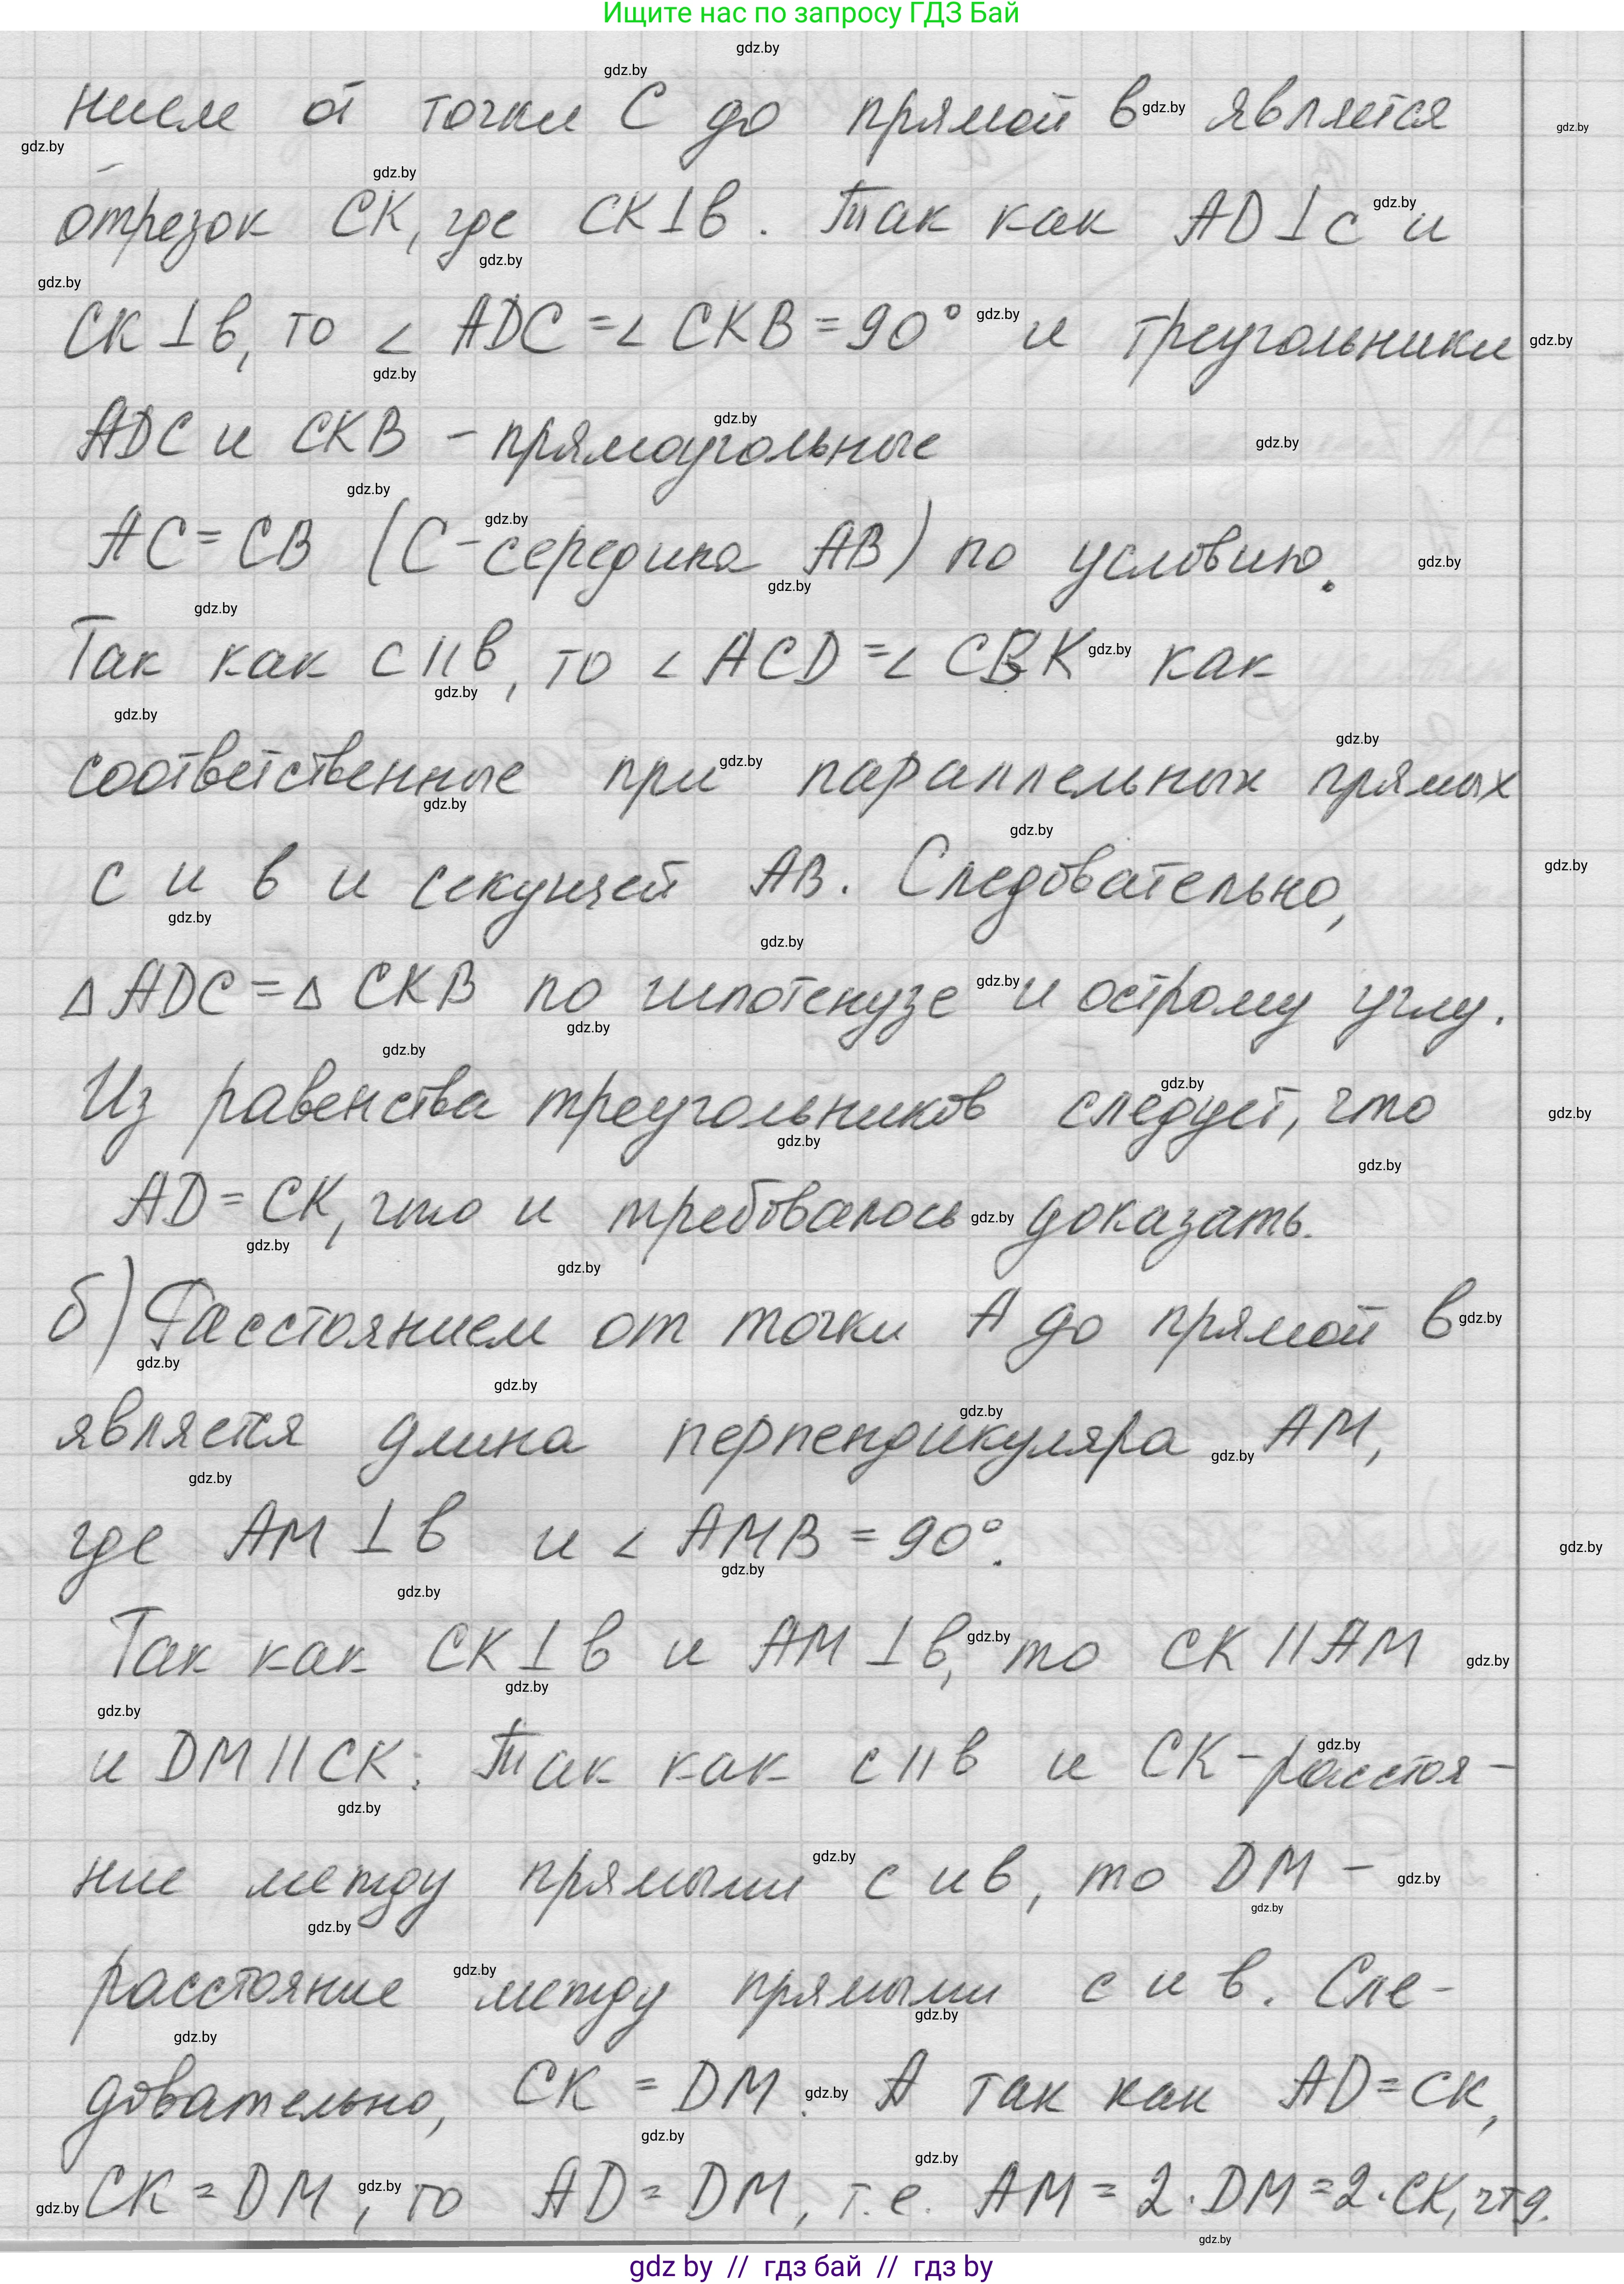 Ищите нас по запросу ГДЗ Бай
нием от точки С до прямой в является
отрезок СК, где СК⊥в. Так как AD⊥c и
СК⊥в, то ∠ADC=∠CKB=90° и треугольники
ADC и CKB - прямоугольные
AC=CB (С-середина AB) по условию.
Так как с||в, то ∠ACD=∠CBK как
соответственные при параллельных прямых
с и в и секущей AB. Следовательно,
△ADC=△CKB по гипотенузе и острому углу.
Из равенства треугольников следует, что
AD=CK, что и требовалось доказать.
б) Расстоянием от точки А до прямой в
является длина перпендикуляра AM,
где AM⊥в и ∠AMB=90°.
Так как CK⊥в и AM⊥в, то CK||AM
и DM||CK. Так как с||в и CK-расстоя-
ние между прямыми с и в, то DM-
расстояние между прямыми с и в. Сле-
довательно, CK=DM. А так как AD=CK,
CK=DM, то AD=DM, т.е. AM=2·DM=2·CK, чтд.
gdz by // гдз бай // гдз by